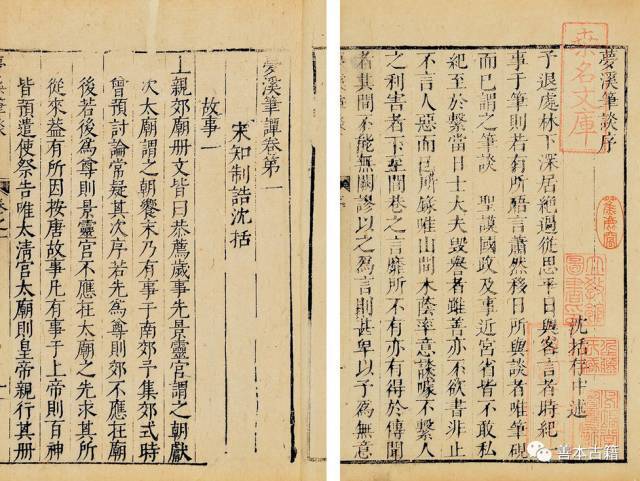 夢溪筆談序
沈括存中述
予退處林下深居絕過從思平日與客言者時紀
事于筆則若有所晤言蕭然移日所與談者唯筆硯
而已謂之筆談 聖謨國政及事近宮省皆不敢私
紀至於繫當日士大夫毀譽者雖善亦不欲書非止
不言人惡而已所錄唯山間木蔭率意談噱不繫人
之利害者下至閭巷之言靡所不有亦有得於傳聞
者其間不能無闕謬以之為言則甚卑以予為無意
桑名文庫
夢溪筆譚卷第一
宋知制誥沈括
故事一
上親郊廟冊文皆曰恭薦歲事先景靈宮謂之朝獻
次太廟謂之朝饗末乃有事于南郊予集郊式時
曾預討論常疑其次序若先為尊則郊不應在廟
後若後為尊則景靈宮不應在太廟之先求其所
從來蓋有所因按唐故事凡有事于上帝則百神
皆預遣使祭告唯太清宮太廟則皇帝親行其冊
善本古籍